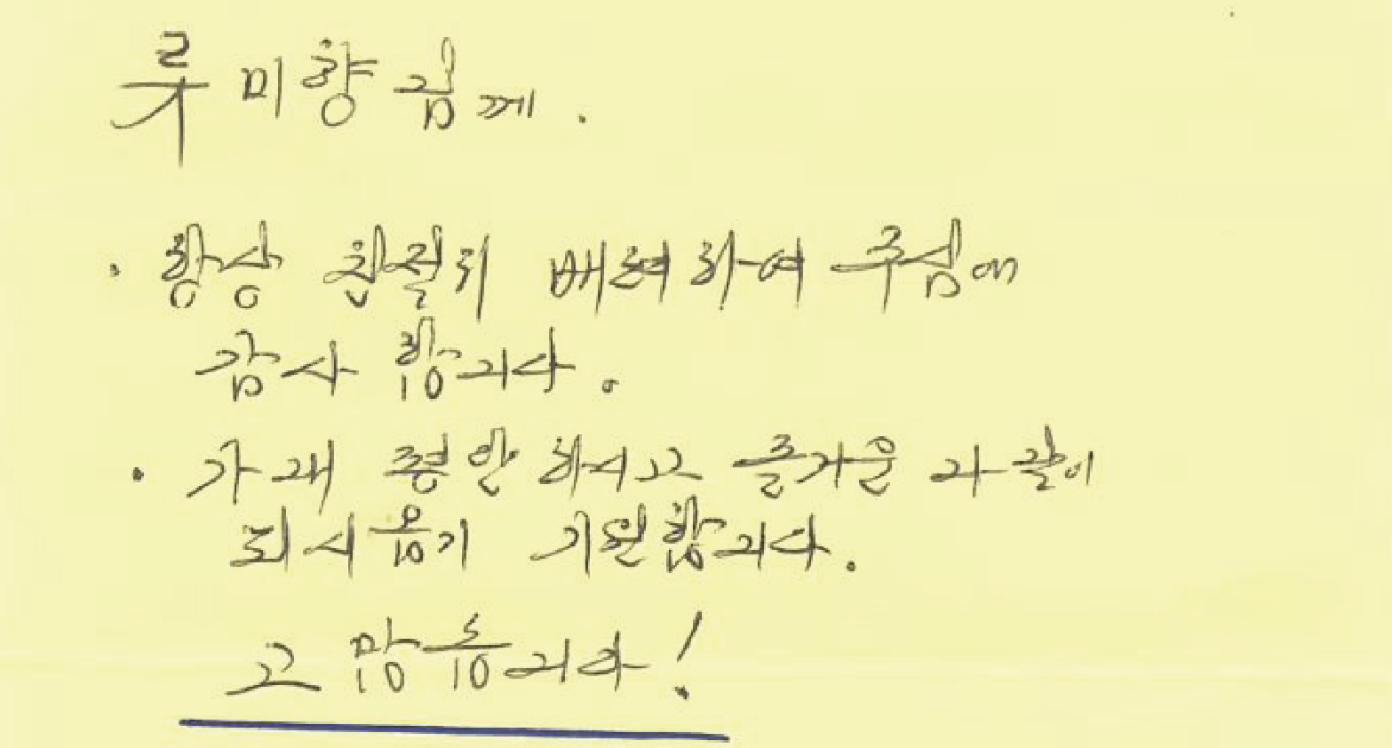 류미향님께.
· 항상 친절히 배려하여 주심에
감사 합니다.
· 가내 평안 하시고 즐거운 나날이
되시옵기 기원합니다.
고맙습니다!